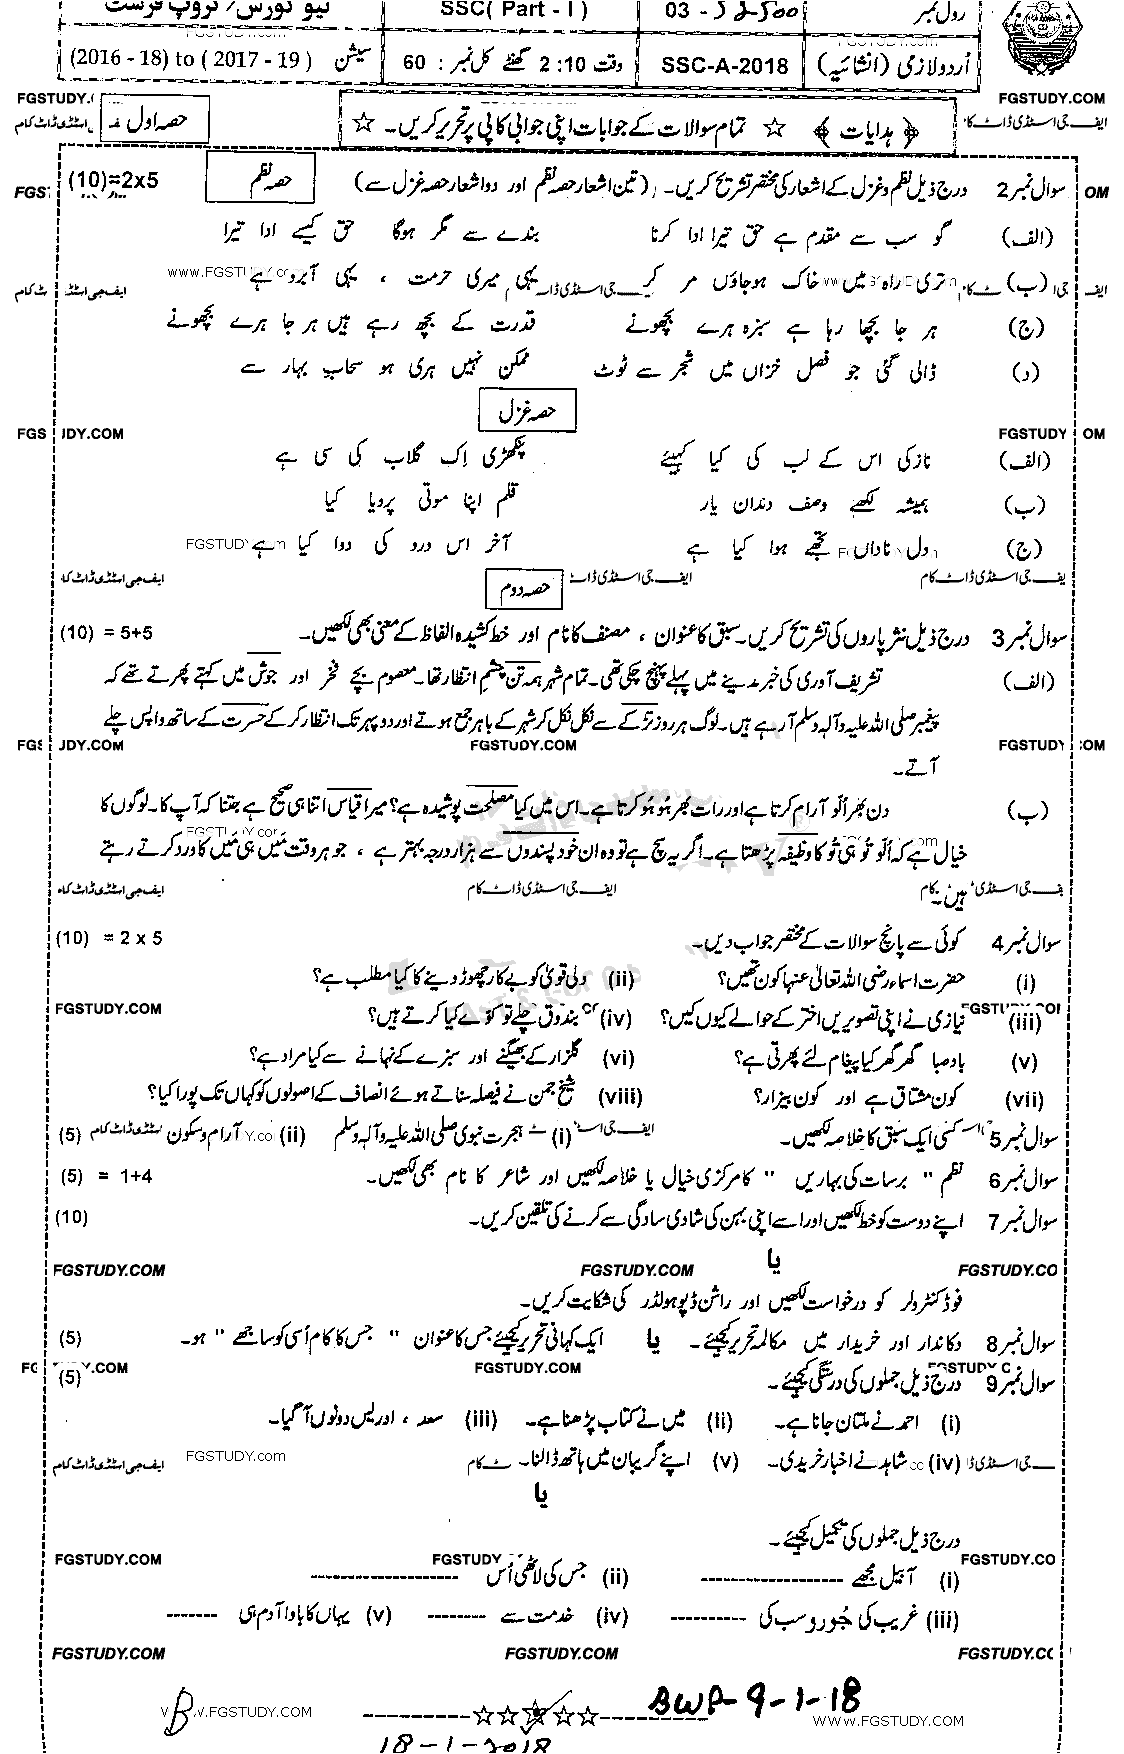 رول نمبر 03 - SSC( Part - I ) نیو کورس/ گروپ فرسٹ
اُردو لازمی (انشائیہ) SSC-A-2018 وقت 2:10 گھنٹے کل نمبر : 60 سیشن (2016 - 18) to ( 2017 - 19 )
FGSTUDY.COM
﴿ ہدایات ﴾ ☆ تمام سوالات کے جوابات اپنی جوابی کاپی پر تحریر کریں۔ ☆ حصہ اول
سوال نمبر 2 درج ذیل نظم و غزل کے اشعار کی مختصر تشریح کریں۔ ( تین اشعار حصہ نظم اور دو اشعار حصہ غزل سے ) حصہ نظم (10)=2x5
(الف) گو سب سے مقدم ہے حق تیرا ادا کرنا بندے سے مگر ہوگا حق کیسے ادا تیرا
(ب) تری راہ میں خاک ہوجاؤں مر کر یہی میری حرمت ، یہی آبرو ہے
(ج) ہر جا بچھا رہا ہے سبزہ ہرے بچھونے قدرت کے بچھ رہے ہیں ہر جا ہرے بچھونے
(د) ڈالی گئی جو فصل خزاں میں شجر سے ٹوٹ ممکن نہیں ہری ہو سحاب بہار سے
حصہ غزل
FGSTUDY.COM
(الف) نازکی اس کے لب کی کیا کہیئے پنکھڑی اِک گلاب کی سی ہے
(ب) ہمیشہ لکھے وصف دندان یار قلم اپنا موتی پرویا کیا
(ج) دل ناداں تجھے ہوا کیا ہے آخر اس درد کی دوا کیا ہے
ایف جی اسٹڈی ڈاٹ کام
حصہ دوم
سوال نمبر 3 درج ذیل نثر پاروں کی تشریح کریں۔ سبق کا عنوان ، مصنف کا نام اور خط کشیدہ الفاظ کے معنی بھی لکھیں۔ (10) = 5+5
(الف) تشریف آوری کی خبر مدینے میں پہلے پہنچ چکی تھی۔ تمام شہر ہمہ تن چشم انتظار تھا۔ معصوم بچے فخر اور جوش میں کہتے پھرتے تھے کہ
پیغمبر صلی اللہ علیہ وآلہ وسلم آ رہے ہیں۔ لوگ ہر روز تڑکے سے نکل نکل کر شہر کے باہر جمع ہوتے اور دوپہر تک انتظار کر کے حسرت کے ساتھ واپس چلے
FGSTUDY.COM FGSTUDY.COM
آتے۔
(ب) دن بھر اُلو آرام کرتا ہے اور رات بھر ہُو ہُو کرتا ہے۔ اس میں کیا مصلحت پوشیدہ ہے؟ میرا قیاس اتنا ہی صحیح ہے جتنا کہ آپ کا۔ لوگوں کا
خیال ہے کہ اُلو تُو ہی تُو کا وظیفہ پڑھتا ہے۔ اگر یہ سچ ہے تو وہ ان خود پسندوں سے ہزار درجہ بہتر ہے ، جو ہر وقت میں ہی میں کا ورد کرتے رہتے
ہیں۔
سوال نمبر 4 کوئی سے پانچ سوالات کے مختصر جواب دیں۔ (10) = 2 x 5
(i) حضرت اسماء رضی اللہ تعالیٰ عنہا کون تھیں؟ (ii) دلی قویٰ کو بے کار چھوڑ دینے کا کیا مطلب ہے؟
(iii) نیازی نے اپنی تصویریں اختر کے حوالے کیوں کیں؟ (iv) بندوق چلے تو کوّے کیا کرتے ہیں؟
FGSTUDY.COM
(v) باد صبا گھر گھر کیا پیغام لئے پھرتی ہے؟ (vi) گلزار کے بھیگنے اور سبزے کے نہانے سے کیا مراد ہے؟
(vii) کون مشتاق ہے اور کون بیزار؟ (viii) شیخ جمن نے فیصلہ سناتے ہوئے انصاف کے اصولوں کو کہاں تک پورا کیا؟
سوال نمبر 5 کسی ایک سبق کا خلاصہ لکھیں۔ (i) ہجرت نبوی صلی اللہ علیہ وآلہ وسلم (ii) آرام و سکون (5)
سوال نمبر 6 نظم " برسات کی بہاریں " کا مرکزی خیال یا خلاصہ لکھیں اور شاعر کا نام بھی لکھیں۔ (5) = 1+4
سوال نمبر 7 اپنے دوست کو خط لکھیں اور اسے اپنی بہن کی شادی سادگی سے کرنے کی تلقین کریں۔ (10)
یا
FGSTUDY.COM FGSTUDY.COM FGSTUDY.CO
فوڈ کنٹرولر کو درخواست لکھیں اور راشن ڈپو ہولڈر کی شکایت کریں۔
سوال نمبر 8 دکاندار اور خریدار میں مکالمہ تحریر کیجئے۔ یا ایک کہانی تحریر کیجئے جس کا عنوان " جس کا کام اُسی کو ساجھے " ہو۔ (5)
FGSTUDY.COM
سوال نمبر 9 درج ذیل جملوں کی درستگی کیجئے۔ (5)
(i) احمد نے ملتان جانا ہے۔ (ii) میں نے کتاب پڑھنا ہے۔ (iii) سعد ، اور لیس دونوں آ گیا۔
(iv) شاہد نے اخبار خریدی۔ (v) اپنے گریبان میں ہاتھ ڈالنا۔
FGSTUDY.com
یا
درج ذیل جملوں کی تکمیل کیجئے۔
FGSTUDY.COM FGSTUDY FGSTUDY.CO
(i) آ بیل مجھے --------------- (ii) جس کی لاٹھی اُس ---------------
(iii) غریب کی جُورو سب کی ---------- (iv) خدمت سے -------- (v) یہاں کا باوا آدم ہی -------
FGSTUDY.COM FGSTUDY.COM FGSTUDY.CO
BWP-9-1-18
--------------☆☆☆☆☆--------------
WWW.FGSTUDY.COM
18-1-2018